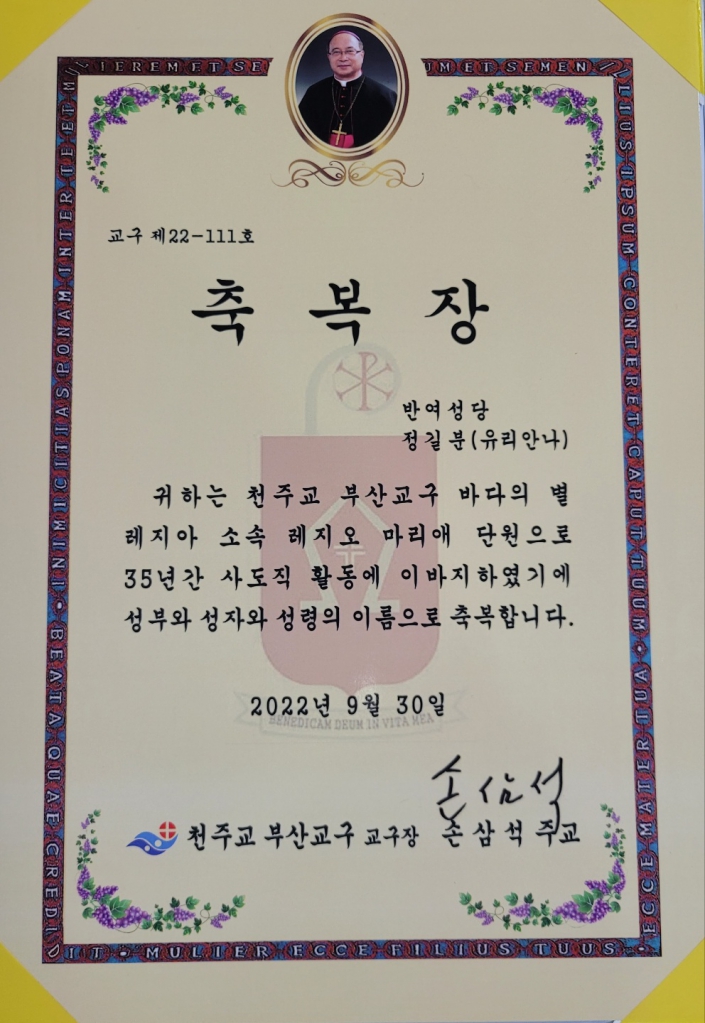 INIMICITIAS PONAM INTER TE ET MULIEREM ET SE
UM ET SEMEN ILLIUS IPSUM CONTERET CAPUT TUUM
교구 제22-111호
축 복 장
반여성당
정길분(유리안나)
귀하는 천주교 부산교구 바다의 별
레지아 소속 레지오 마리애 단원으로
35년간 사도직 활동에 이바지하였기에
성부와 성자와 성령의 이름으로 축복합니다.
2022년 9월 30일
BENEDICAM DEUM IN VITA MEA
손삼석
천주교 부산교구 교구장 손삼석 주교
BEATA QUAE CREDIDIT • MULIER ECCE FILIUS TUUS • ECCE MATER TUA